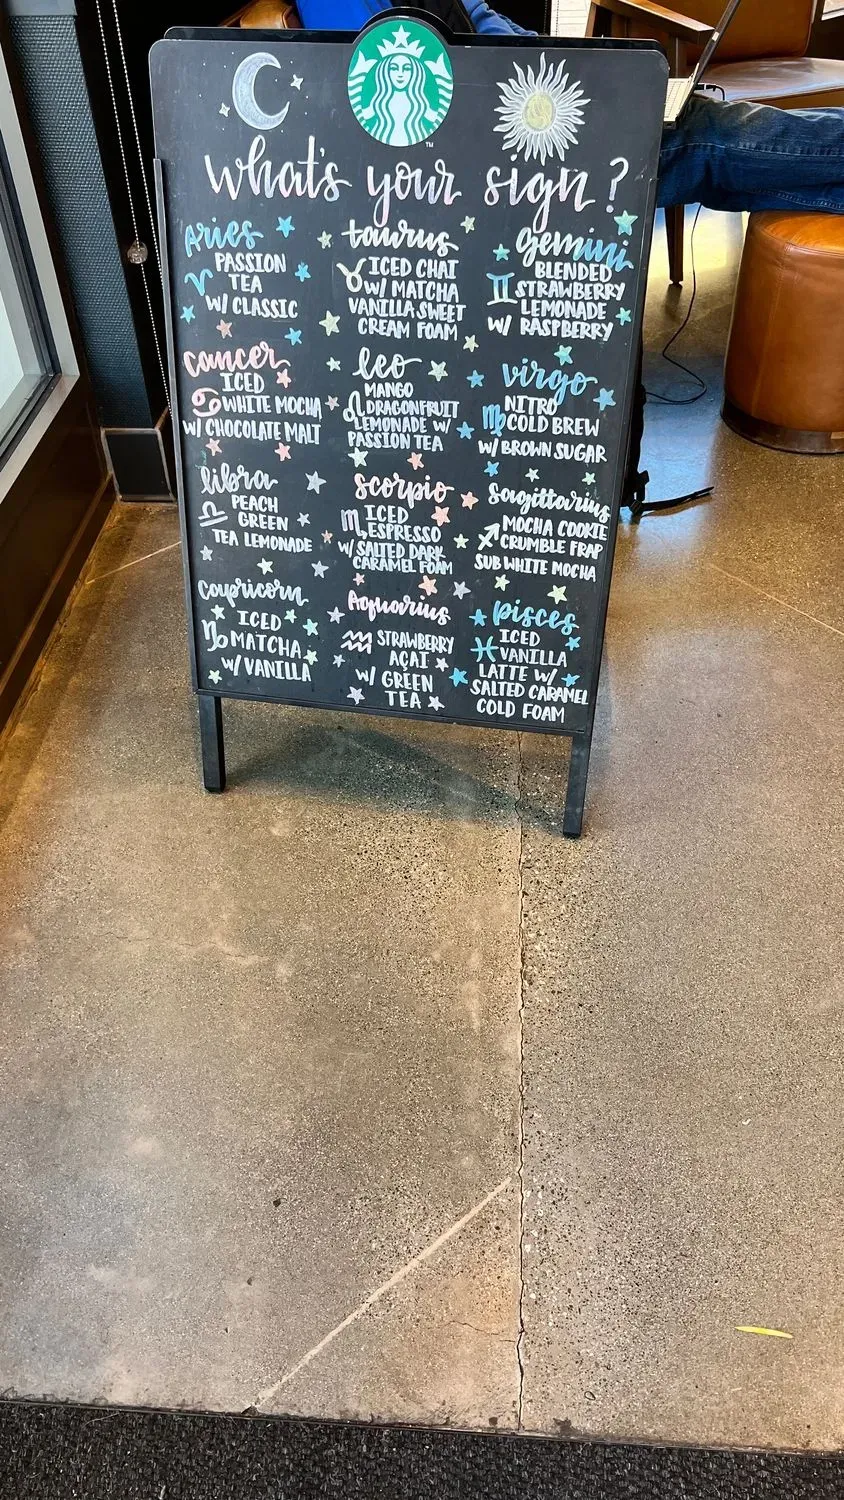 ™
what's your sign?
Aries
PASSION
TEA
W/ CLASSIC
taurus
ICED CHAI
W/ MATCHA
VANILLA SWEET
CREAM FOAM
gemini
BLENDED
STRAWBERRY
LEMONADE
W/ RASPBERRY
cancer
ICED
WHITE MOCHA
W/ CHOCOLATE MALT
leo
MANGO
DRAGONFRUIT
LEMONADE W/
PASSION TEA
virgo
NITRO
COLD BREW
W/ BROWN SUGAR
libra
PEACH
GREEN
TEA LEMONADE
scorpio
ICED
ESPRESSO
W/ SALTED DARK
CARAMEL FOAM
Sagittarius
MOCHA COOKIE
CRUMBLE FRAP
SUB WHITE MOCHA
Capricorn
ICED
MATCHA
W/ VANILLA
Aquarius
STRAWBERRY
AÇAI
W/ GREEN
TEA
pisces
ICED
VANILLA
LATTE W/
SALTED CARAMEL
COLD FOAM